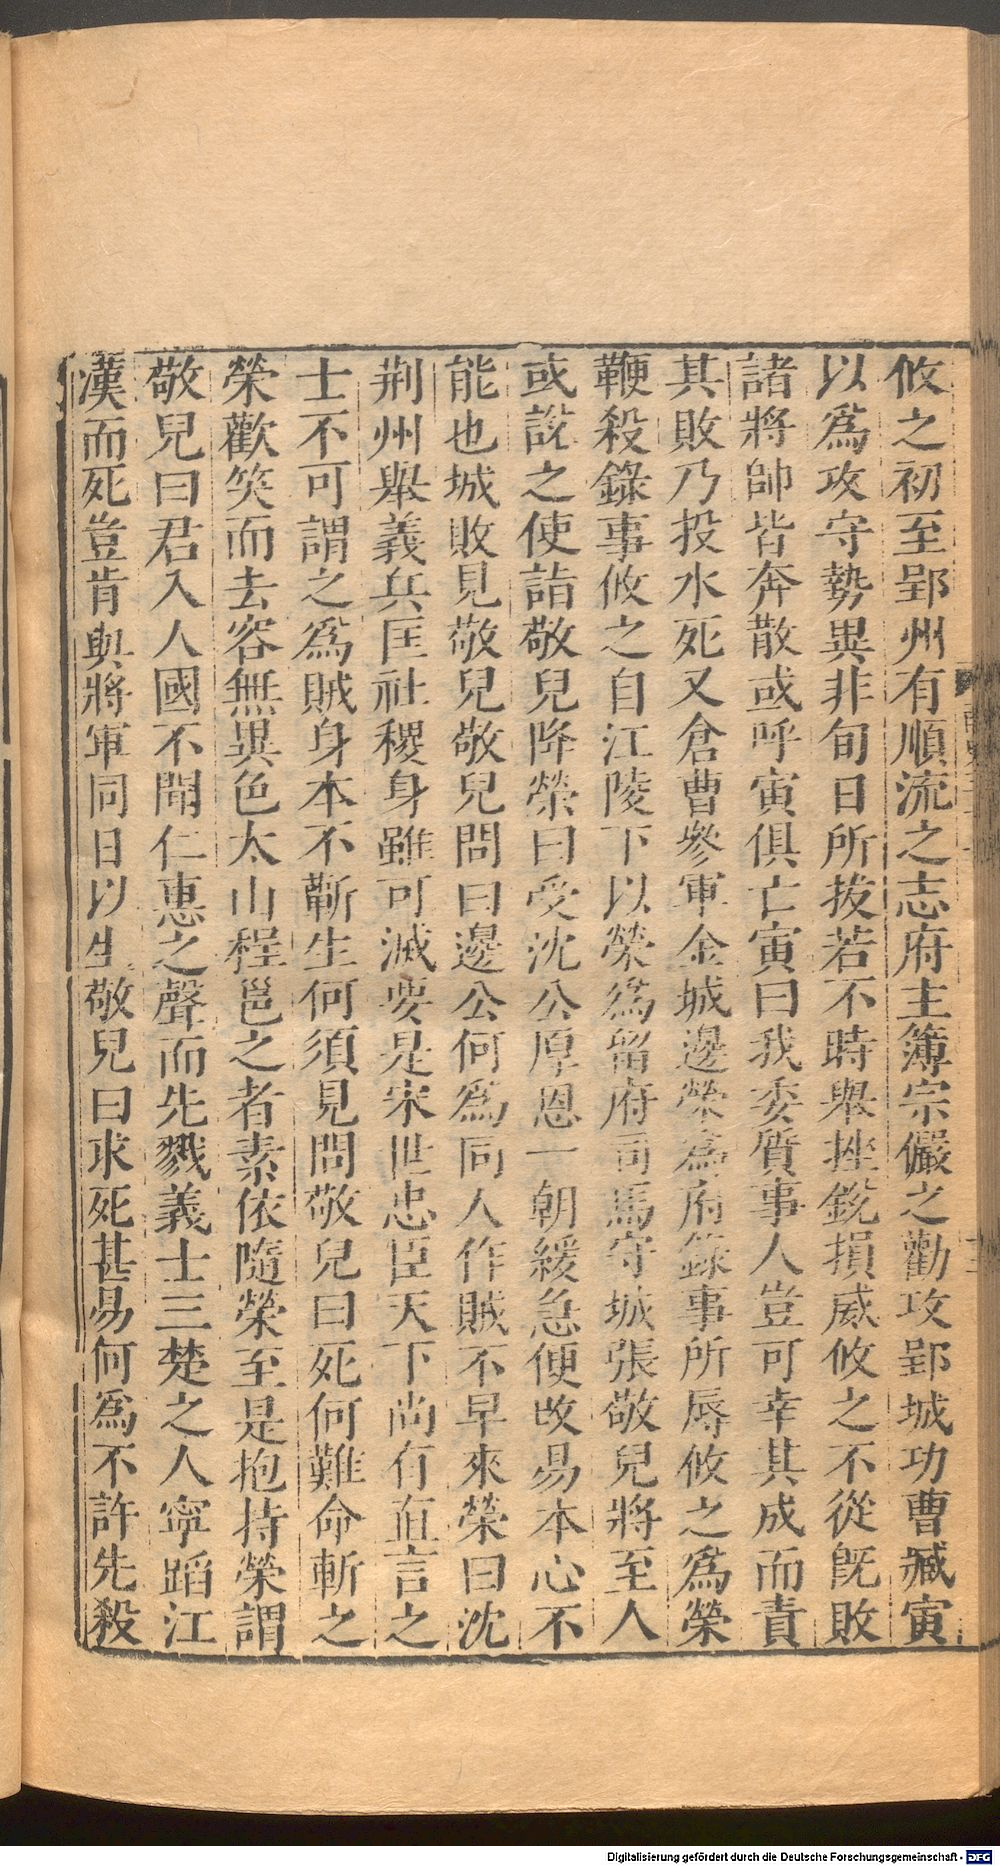 攸之初至郢州有順流之志府主簿宗儼之勸攻郢城功曹臧寅
以爲攻守勢異非旬日所拔若不時舉挫銳損威攸之不從旣敗
諸將帥皆奔散或呼寅俱亡寅曰我委質事人豈可幸其成而責
其敗乃投水死又倉曹參軍金城邊榮爲府錄事所辱攸之爲榮
鞭殺錄事攸之自江陵下以榮爲留府司馬守城張敬兒將至人
或說之使詣敬兒降榮曰受沈公厚恩一朝緩急便改易本心不
能也城敗見敬兒敬兒問曰邊公何爲同人作賊不早來榮曰沈
荆州舉義兵匡社稷身雖可滅要是宋世忠臣天下尚有直言之
士不可謂之爲賊身本不蘄生何須見問敬兒曰死何難命斬之
榮歡笑而去容無異色太山程邕之者素依隨榮至是抱持榮謂
敬兒曰君入人國不聞仁惠之聲而先戮義士三楚之人寧蹈江
漢而死豈肯與將軍同日以生敬兒曰求死甚易何爲不許先殺
Digitalisierung gefördert durch die Deutsche Forschungsgemeinschaft - DFG